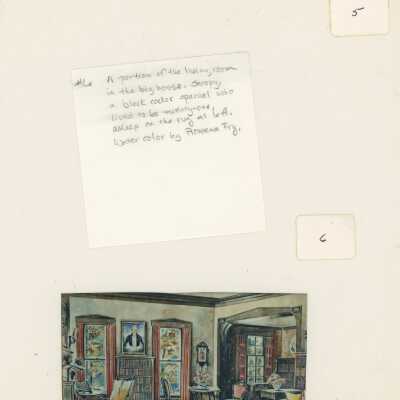 5
#6 A portion of the living room
in the big house. Snoopy,
a black cocker spaniel who
lived to be twenty-one,
asleep on the rug at left.
Water color by Rowena Fry.
6